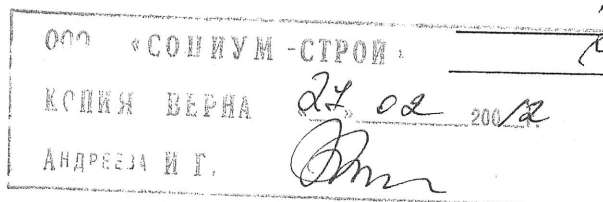 ООО «СОНИУМ-СТРОЙ»
КОПИЯ ВЕРНА «27» 02 200 12г.
АНДРЕЕВА И Г.